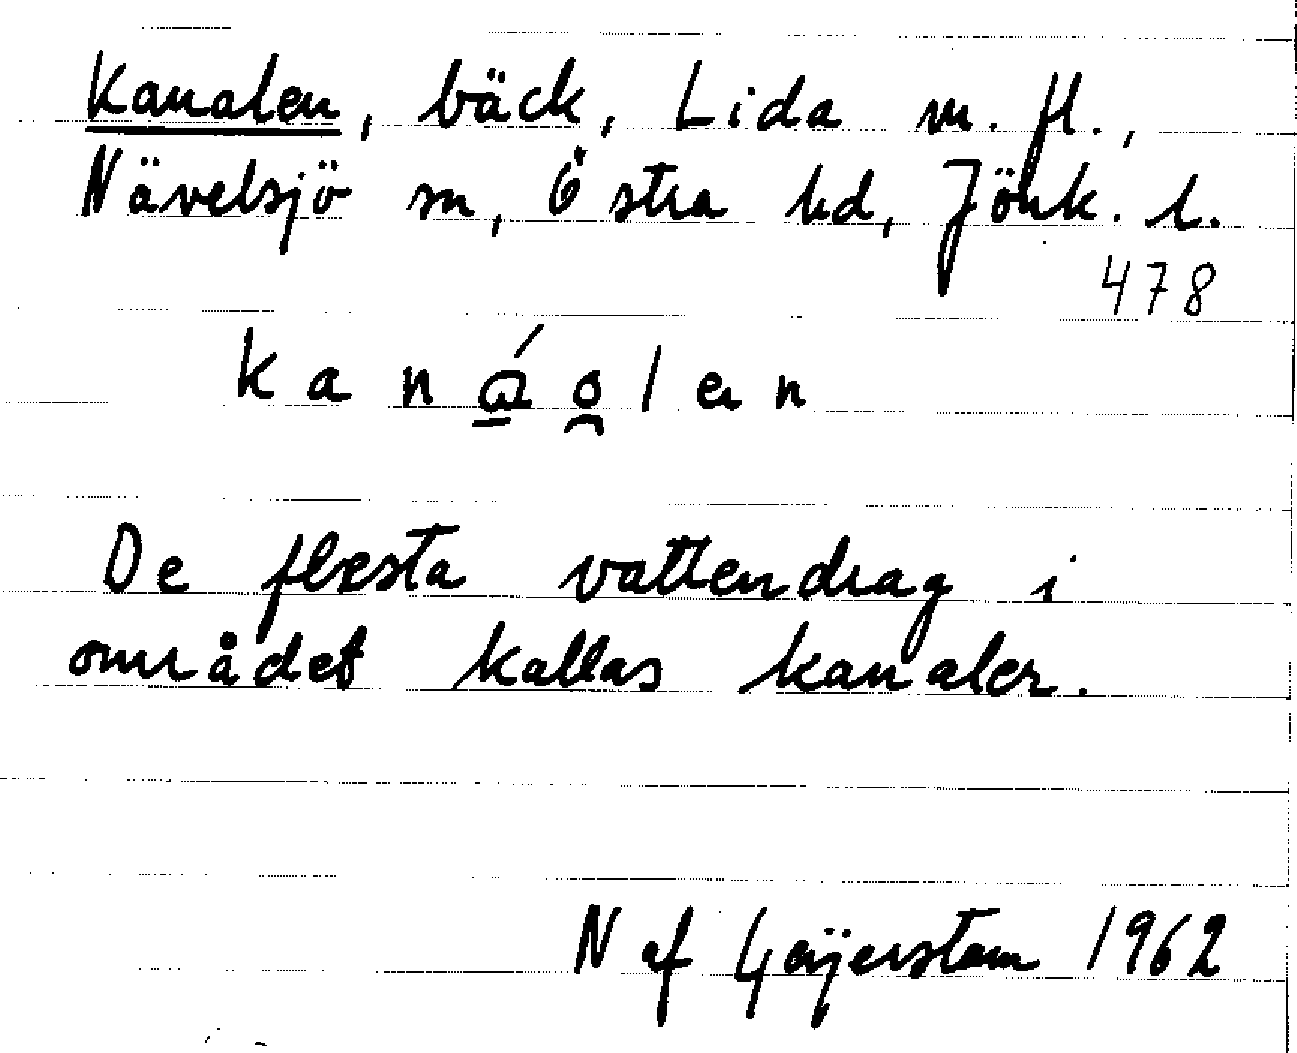 Kanalen, bäck, Lida m. fl.,
Nävelsjö sn, Östra hd, Jönk. l.
478
De flesta vattendrag i
området kallas kanaler.
N af Geijerstam 1962